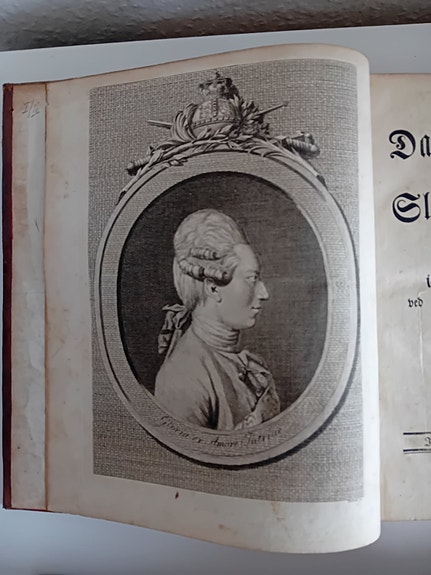 Gloria ex Amore Patriae
Da
Sl
ved